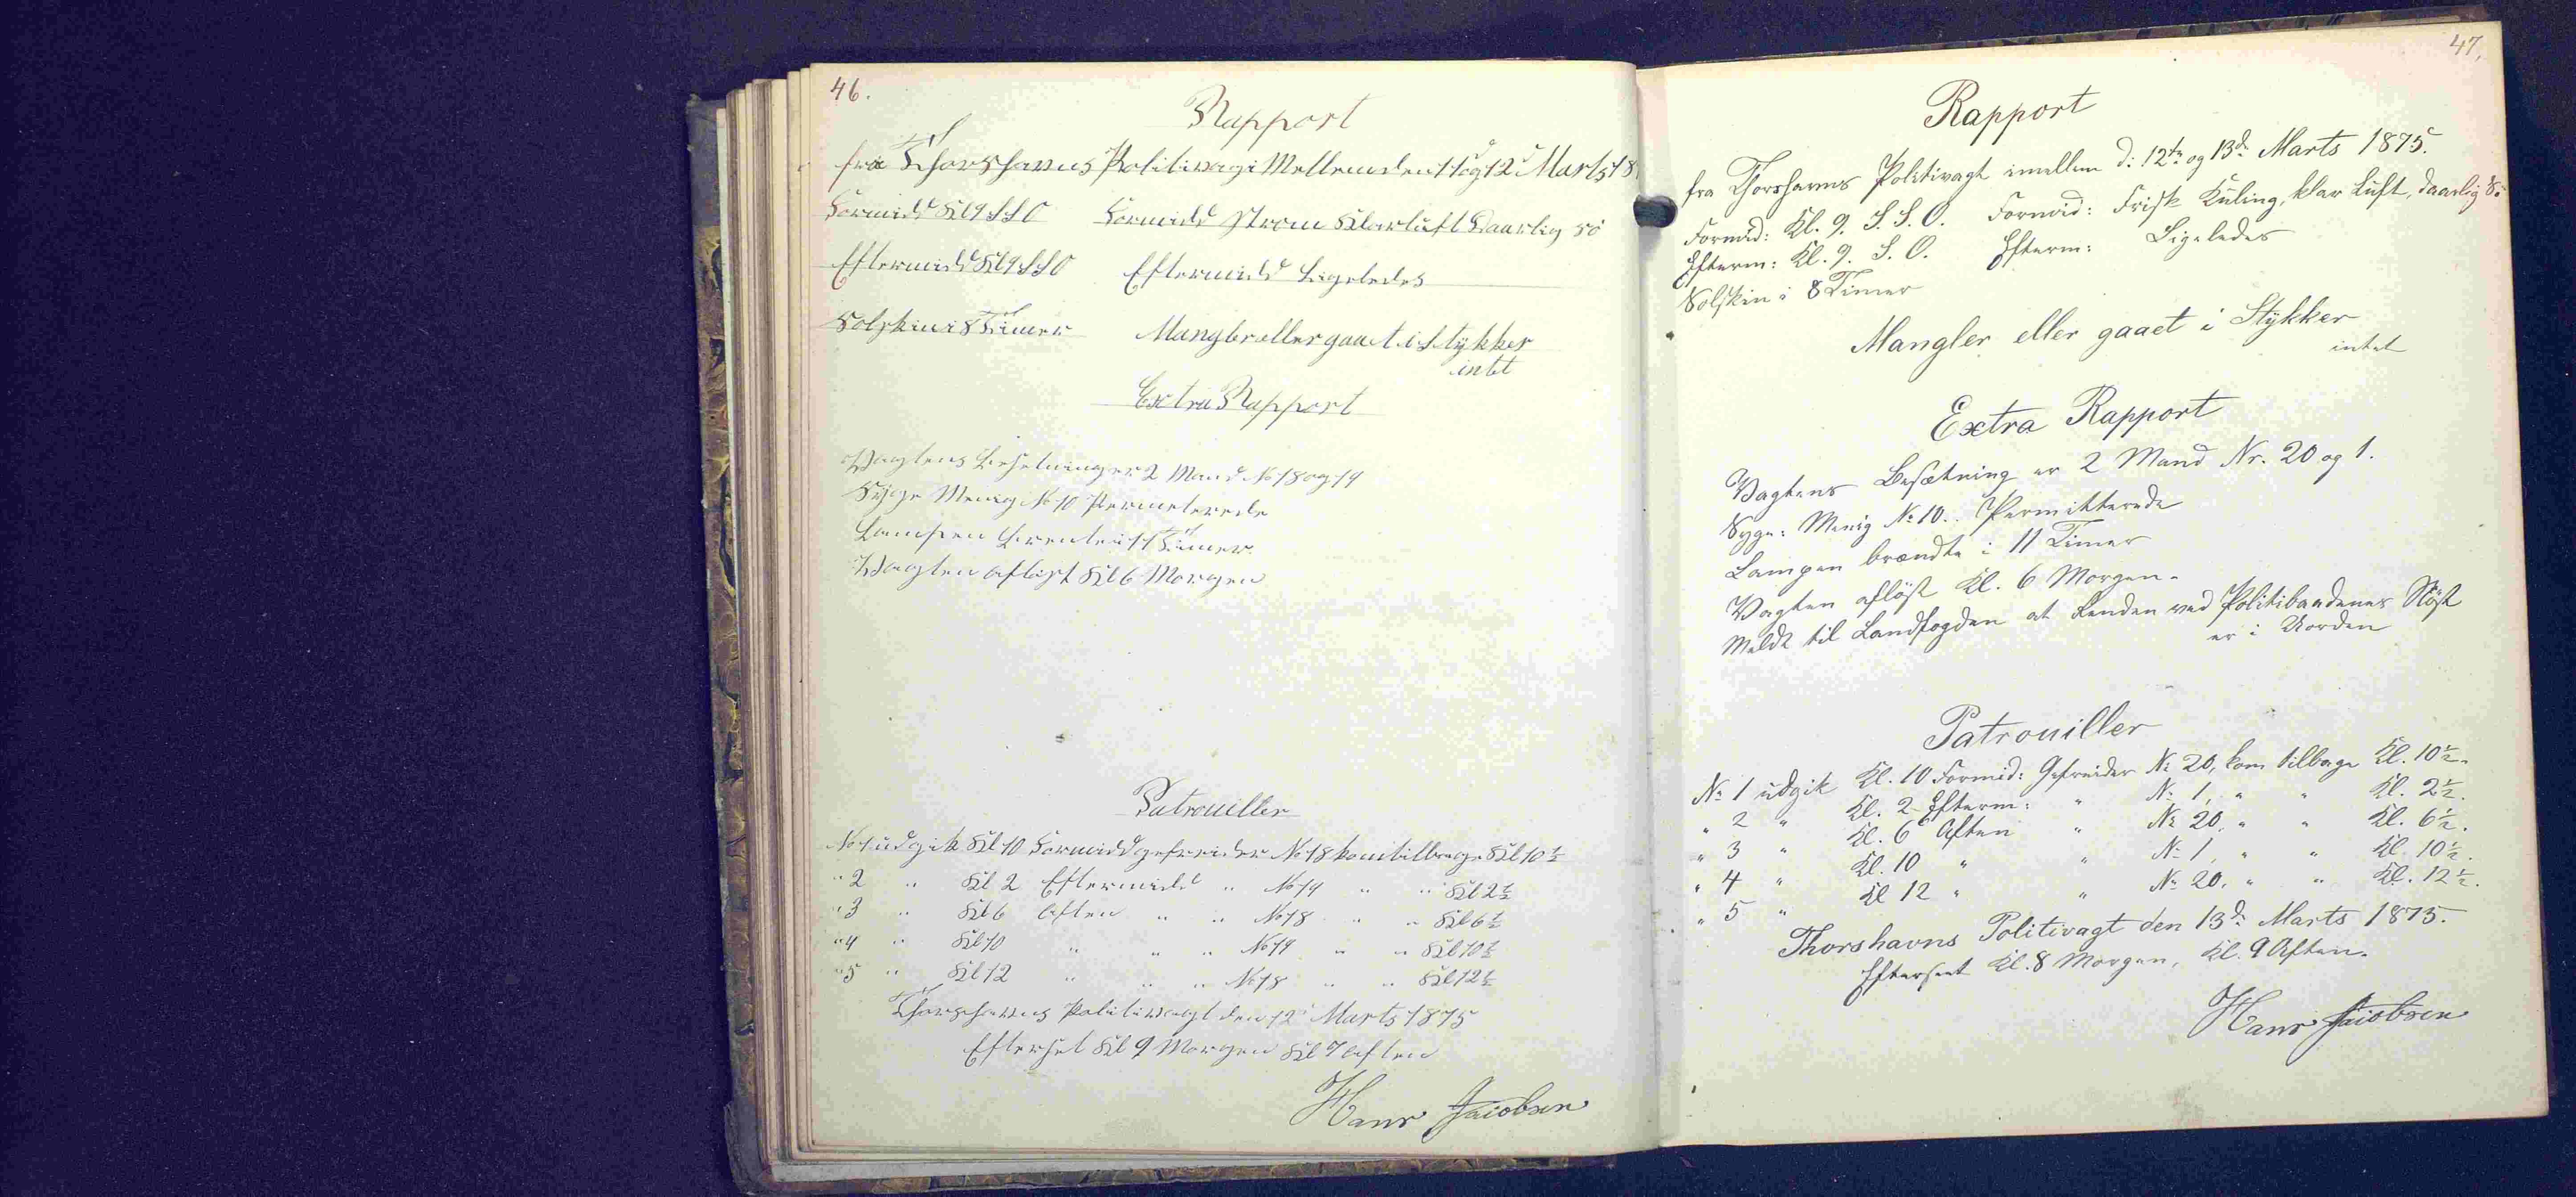 46.
Rapport
fra Thorshavns Politivagt Mellem den 11 og 12 Marts 18
Formidd Kl 9 S S O Formidd Strom Klar luft Daarlig Sö
Eftermidd Kl 9 S S O Eftermidd Ligeledes
Solskin i 8 Timer Mangler eller gaaet i Stykker
intet
Extra Rapport
Vagtens Besetning er 2 Mand No 18 og 19
Syge Menig No 10 Permeterede
Lampen brente i 11 Timer
Vagten aflöst Kl 6 Morgen
Patrouiller
No 1 udgik Kl 10 Formidd gefreider No 18 kom tilbage Kl 10½
" 2 " Kl 2 Eftermidd " No 19 " " Kl 2½
" 3 " Kl 6 Aften " " No 18 " " Kl 6½
" 4 " Kl 10 " " " No 19 " " Kl 10½
" 5 " Kl 12 " " " No 18 " " Kl 12½
Thorshavns Politivagt den 12 Marts 1875
Efterset Kl 9 Morgen Kl 7 Aften
Hans Jacobsen
47.
Rapport
fra Thorshavns Politivagt imellem d: 12te og 13de Marts 1875.
Formid: Kl. 9. S. S. O. Formid: Frisk Kuling, klar Luft, daarlig Sö
Efterm: Kl. 9. S. O. Efterm: Ligeledes
Solskin i 8 Timer
Mangler eller gaaet i Stykker
intet
Extra Rapport
Vagtens Besætning er 2 Mand Nr. 20 og 1.
Syge: Menig No 10. Permitterede
Lampen brændte i 11 Timer
Vagten aflöst Kl. 6 Morgen.
Meldt til Landfogden at Renden ved Politibaadenes Nöst
er i Uorden
Patrouiller
No 1 udgik Kl. 10 Formid: Gefreider No 20, kom tilbage Kl. 10½.
" 2 " Kl. 2 Efterm: " No 1, " " Kl. 2½.
" 3 " Kl. 6 Aften " No 20, " " Kl. 6½.
" 4 " Kl. 10 " " No 1, " " Kl. 10½.
" 5 " Kl 12 " " No 20, " " Kl. 12½.
Thorshavns Politivagt den 13de Marts 1875.
Efterseet Kl. 8 Morgen, Kl. 9 Aften.
Hans Jacobsen